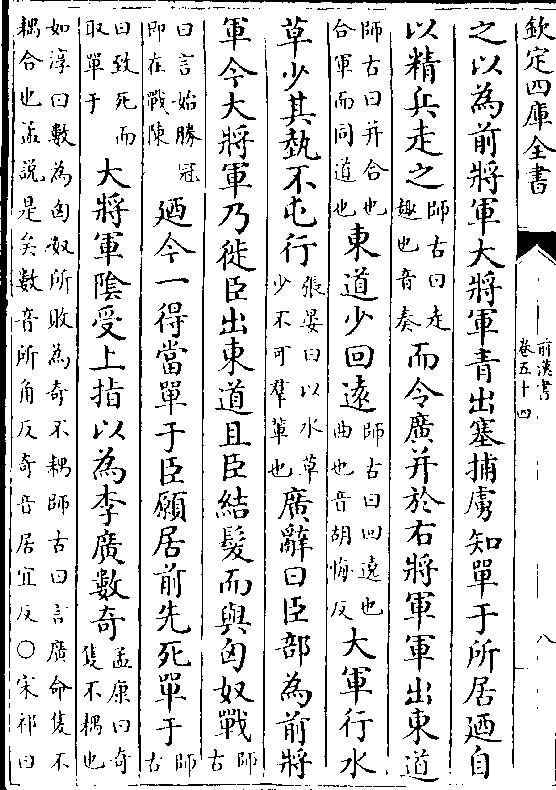 欽定四庫全書
前漢書
卷五十四
八
之以為前將軍大將軍青出塞捕虜知單于所居迺自
以精兵走之師古曰走趣也音奏而令廣并於右將軍軍出東道
師古曰并合也合軍而同道也東道少回遠師古曰回遶也曲也音胡悔反大軍行水
草少其埶不屯行張晏曰以水草少不可羣軰也廣辭曰臣部為前將
軍今大將軍乃徙臣出東道且臣結髮而與匈奴戰師古
曰言始勝冠即在戰陳迺今一得當單于臣願居前先死單于師古
曰致死而取單于大將軍陰受上指以為李廣數奇孟康曰奇隻不耦也
如淳曰數為匈奴所敗為奇不耦師古曰言廣命隻不耦合也孟說是矣數音所角反奇音居宜反○宋祁曰